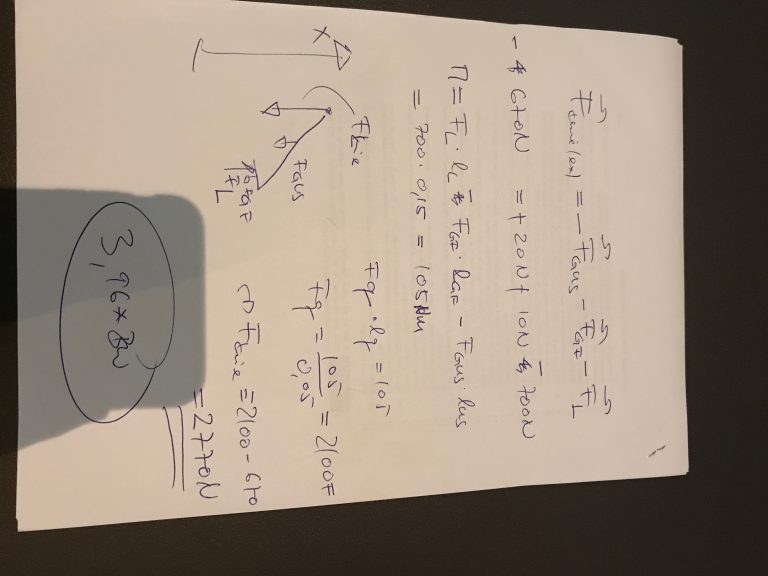 F⃗knie(ex) = - F⃗GUS - F⃗GF - F⃗L
- 670N = +20N + 10N - 700N
M = FL · lL + FGF · lGF - FGUS · lUS
= 700 · 0,15 = 105Nm
Fq · lq = 105
Fq = 105 / 0,05 = 2100F
Fknie = 2100 - 670
= 2770N
X
Fknie
FGUS
FL
3,96 ×